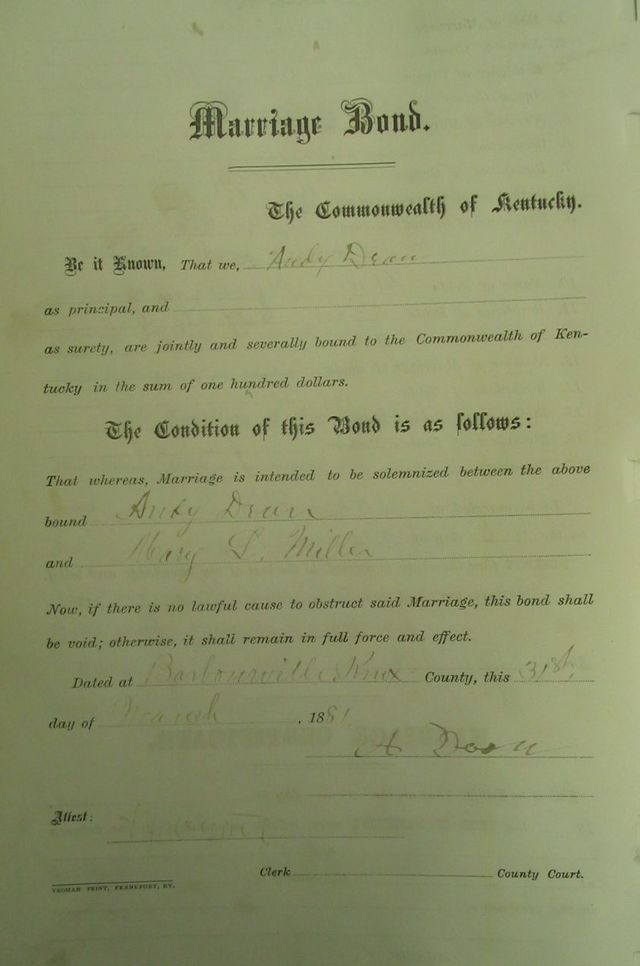 Marriage Bond.
The Commonwealth of Kentucky.
Be it Known, That we, Andy Dean
as principal, and
as surety, are jointly and severally bound to the Commonwealth of Ken-
tucky in the sum of one hundred dollars.
The Condition of this Bond is as follows:
That whereas, Marriage is intended to be solemnized between the above
bound Andy Dean
and Mary L. Miller
Now, if there is no lawful cause to obstruct said Marriage, this bond shall
be void; otherwise, it shall remain in full force and effect.
Dated at Barbourville Knox County, this 31st
day of March, 1881
A Dean
Attest:
Clerk County Court.
YEOMAN PRINT, FRANKFORT, KY.